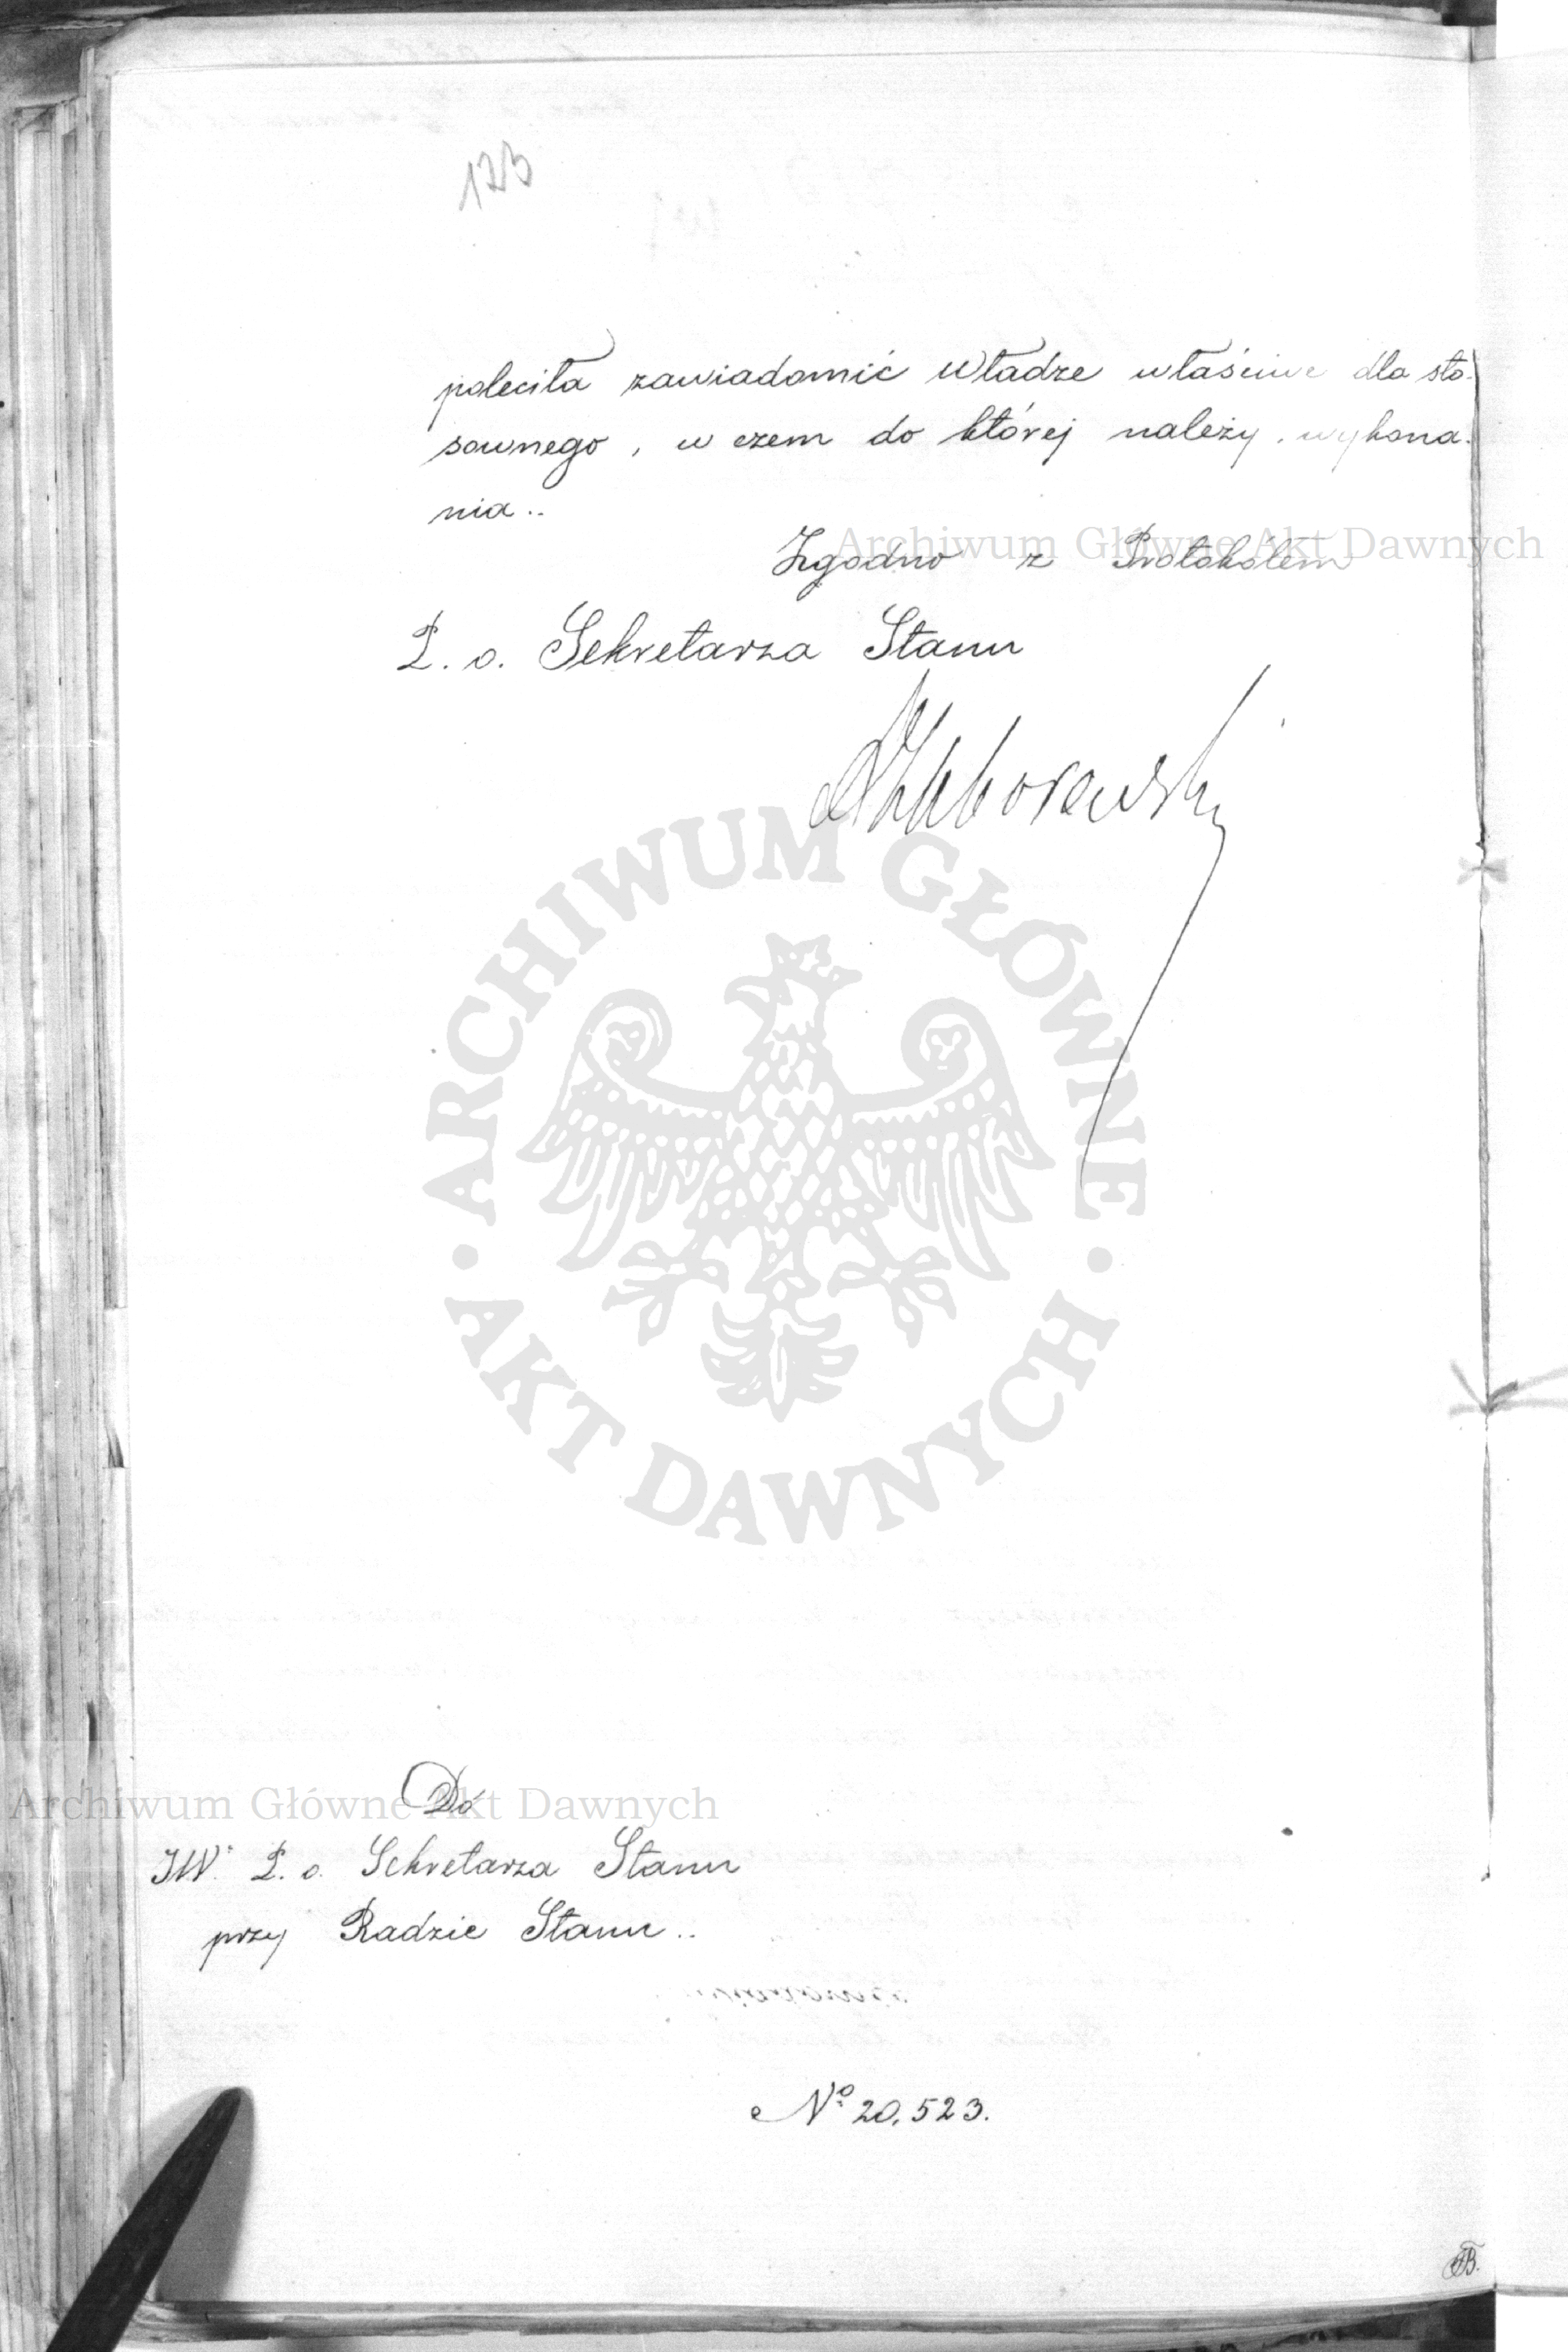 123
poleciła zawiadomić Władze właściwe dla sto-
sownego, w czem do której należy, wykona-
nia..
Zgodno z Protokółem
P. o. Sekretarza Stanu
Archiwum Główne Akt Dawnych
ARCHIWUM GŁÓWNE
AKT DAWNYCH
Do
Archiwum Główne Akt Dawnych
JW. P. o. Sekretarza Stanu
przy Radzie Stanu..
No 20,523.